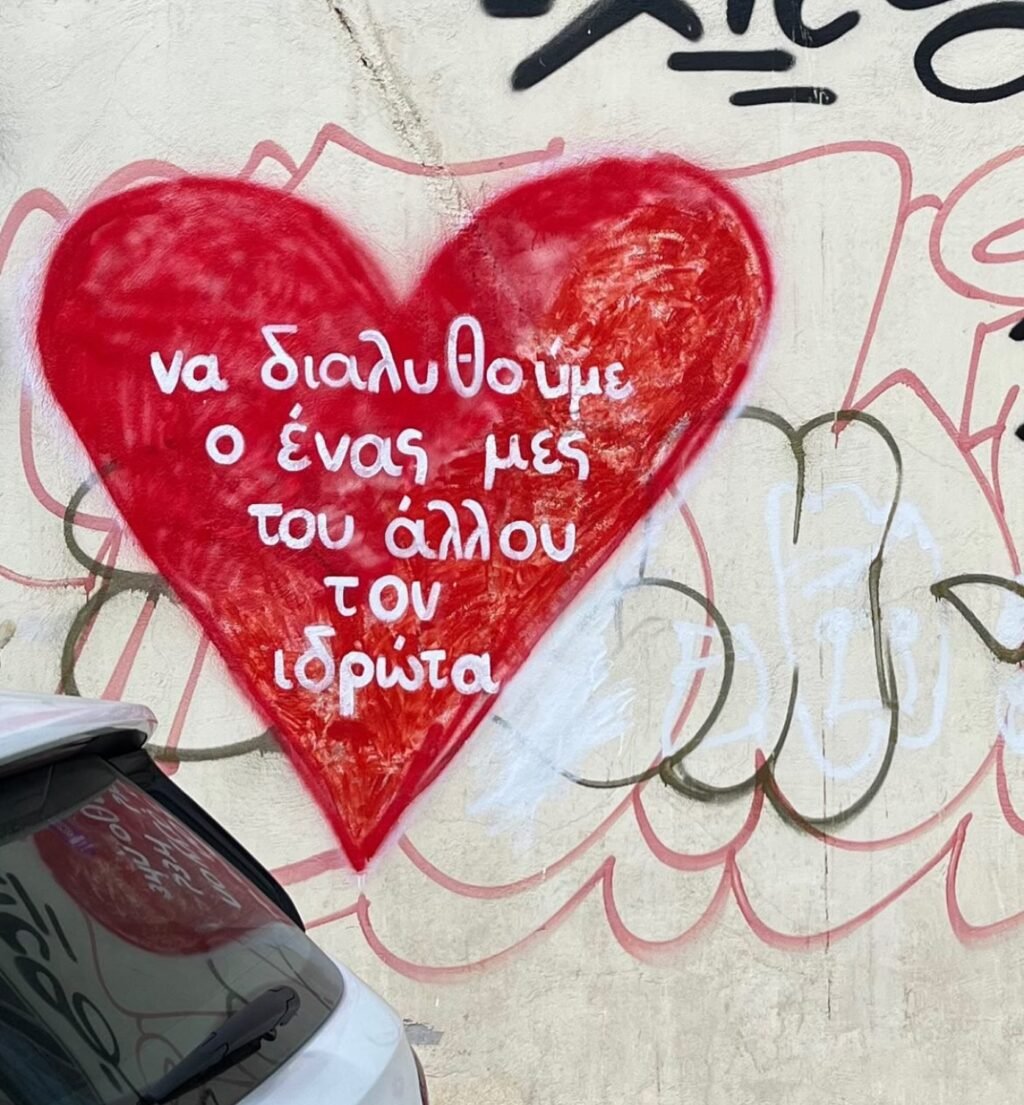 να διαλυθούμε
ο ένας μες
του άλλου
τον
ιδρώτα